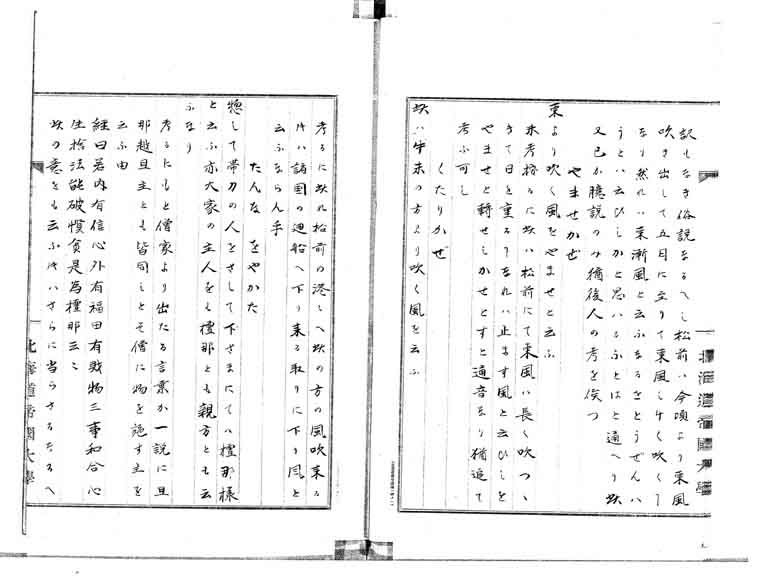 訳もなき俗説なるへし松前ハ今頃より東風
吹き出して五日に立りて東風しけく吹くし
なり然れハ東漸風と云ふなるをとうせんハ
うとハ云ひしかと思ハるふとはと通へり此
又己か臆説のみ猶後人の考を俟つ
やませかぜ
東より吹く風をやませと云ふ
未考格るに此ハ松前にて東風ハ長く吹つゝ
きて日を重るゝなれハ止ます風と云ひしを
やませと轉せしかせとすと通音なり猶追て
考ふ可し
くたりかぜ
此ハ牛未の方より吹く風を云ふ
考るに此れ松前の港しへ此の方の風吹来る
時ハ諸国の廻船へ下り来る取りに下り風と
云ふならん乎
たんな をやかた
惣して帯刀の人をさして下さまにてハ檀那様
と云ふ亦大家の主人をも檀那とも親方とも云
ふなり
考るにもと僧家より出たる言葉か一説に旦
那越旦主とも皆同しとそ僧に物を施す主を
云ふ由
経曰若内有信心外有福田有戝物三事和合心
生捨法能破慳貪是為檀那云云
此の意をも云ふ時ハさらに当らさるなるへ
北海道帝国大學